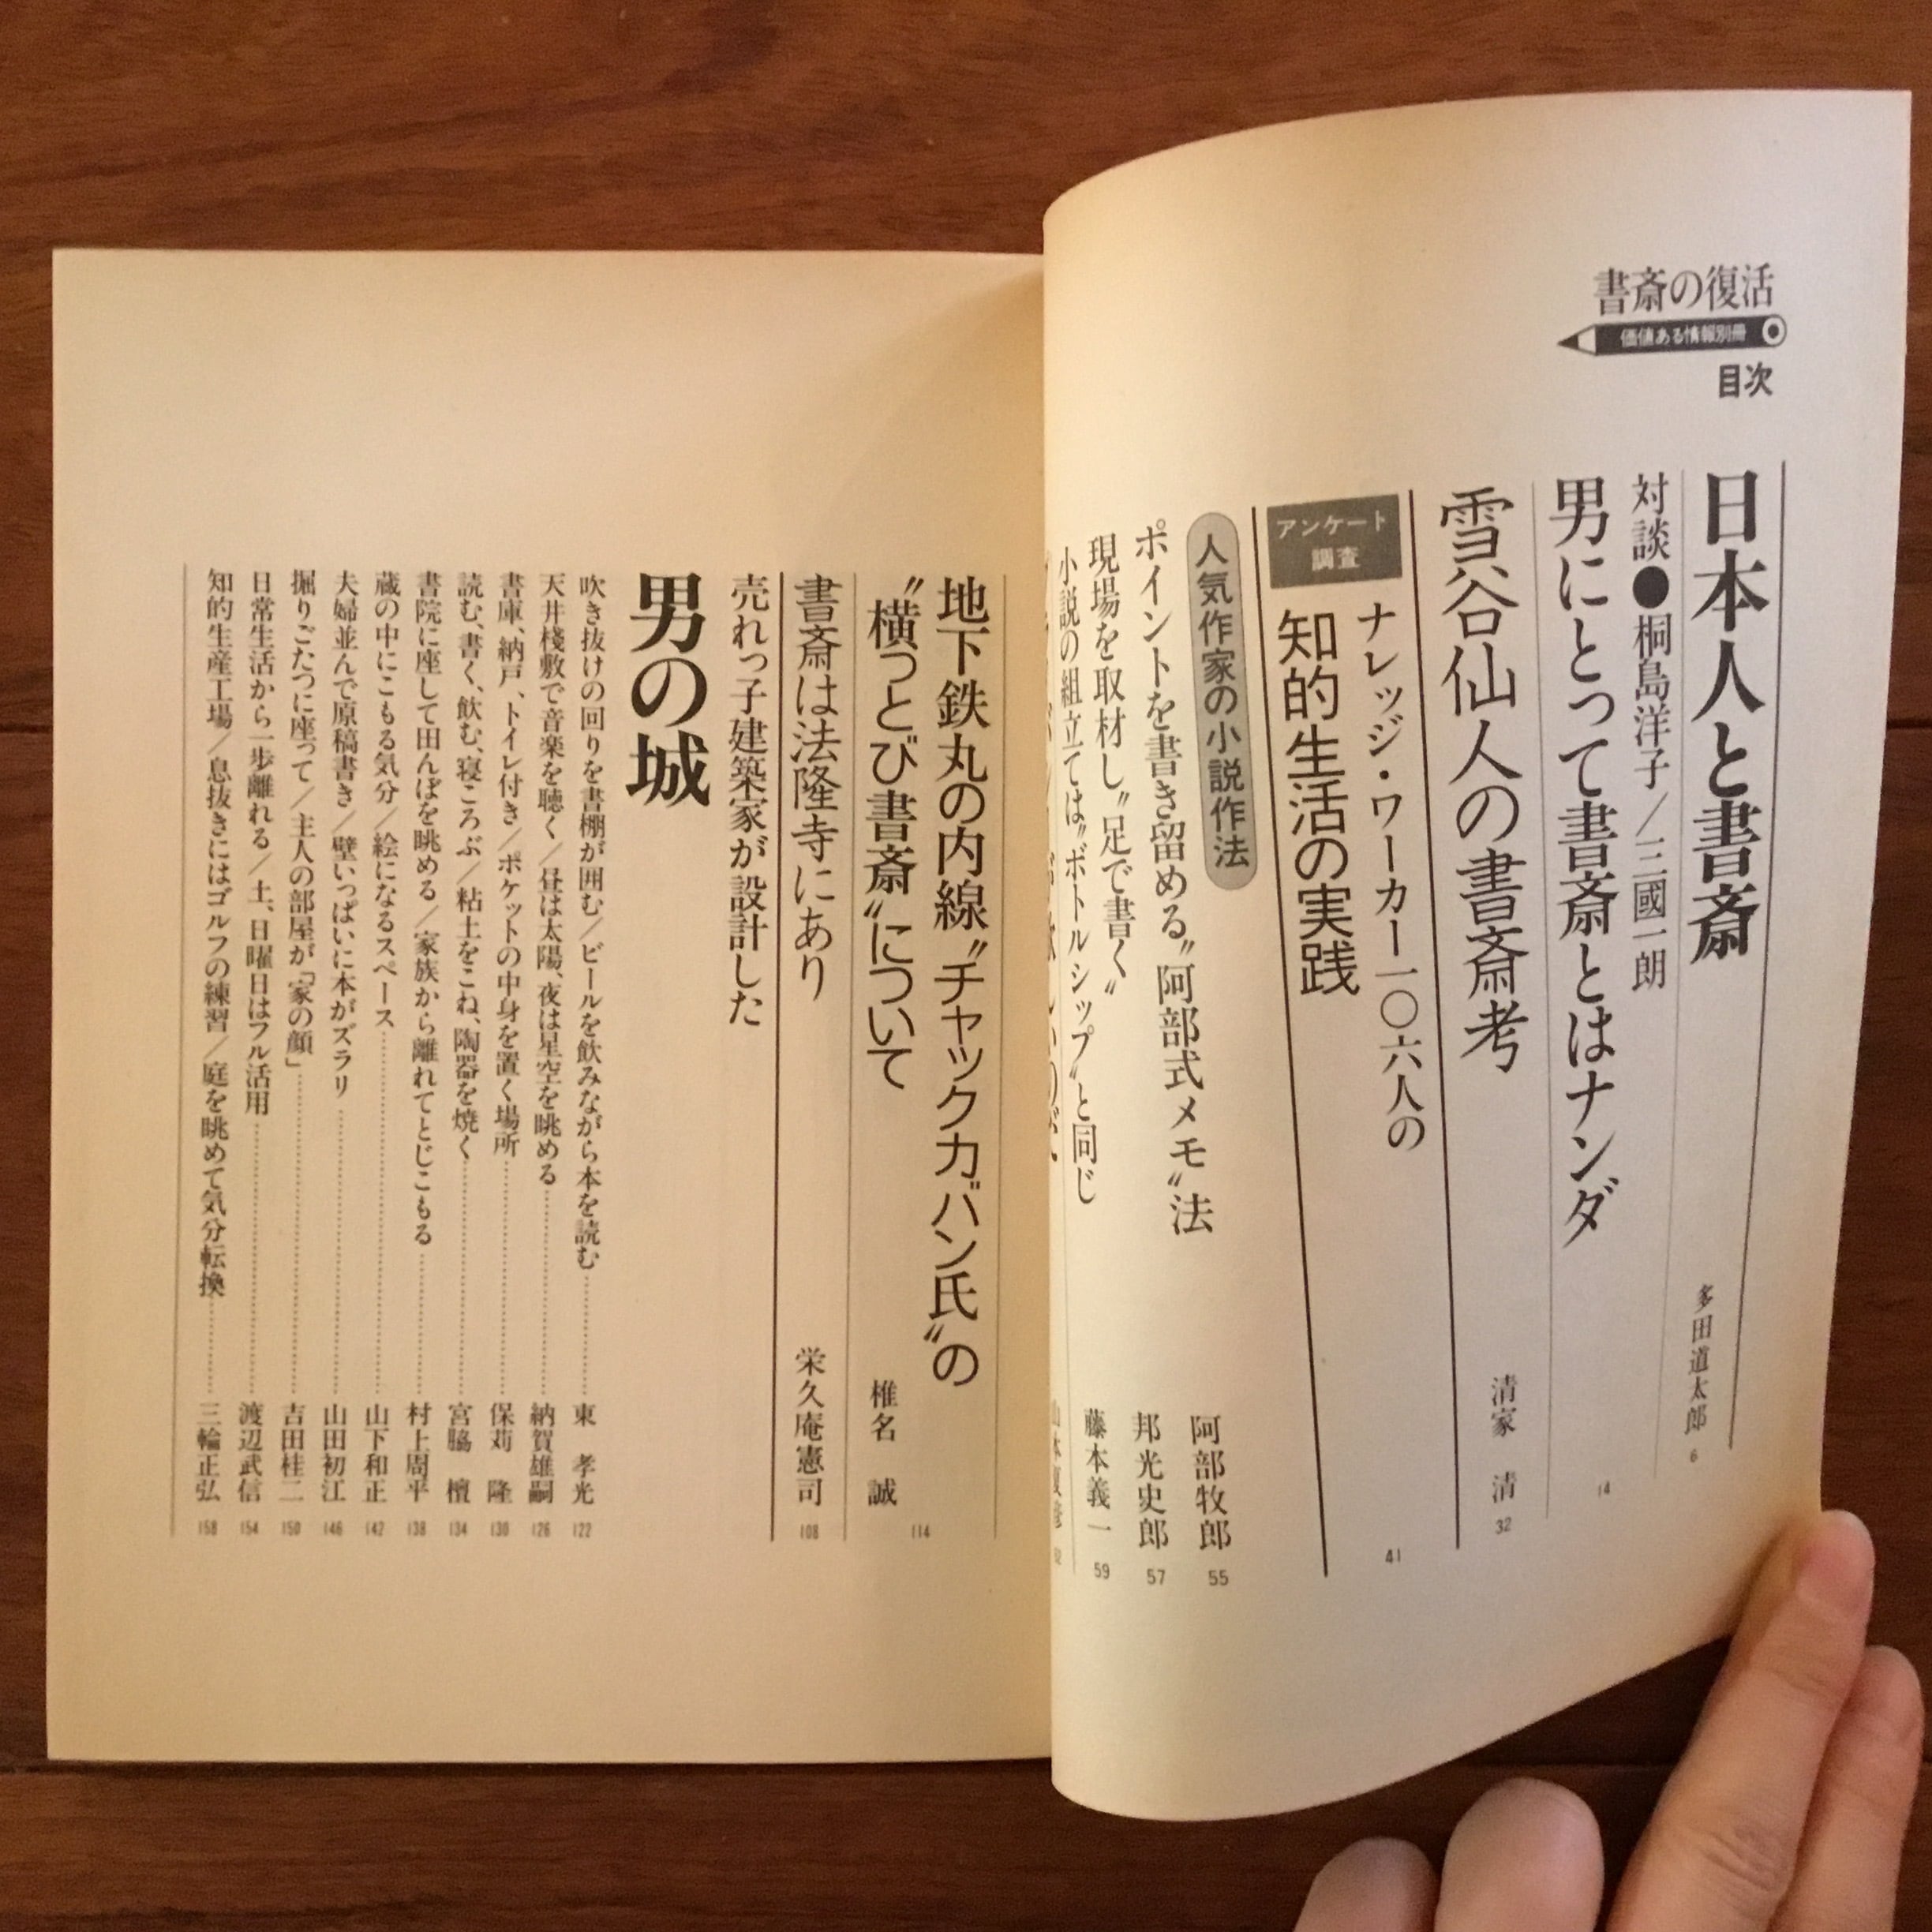 書斎の復活
価値ある情報別冊
目次
日本人と書斎
多田道太郎 6
対談●桐島洋子／三國一朗
男にとって書斎とはナンダ
14
雪谷仙人の書斎考
清家 清 32
アンケート
調査
ナレッジ・ワーカー一〇六人の
知的生活の実践
41
人気作家の小説作法
ポイントを書き留める〝阿部式メモ〟法
阿部牧郎 55
現場を取材し〝足で書く〟
邦光史郎 57
小説の組立ては〝ボトルシップ〟と同じ
藤本義一 59
地下鉄丸の内線〝チャックカバン氏〟の
〝横っとび書斎〟について
椎名 誠 114
書斎は法隆寺にあり
栄久庵憲司 108
売れっ子建築家が設計した
男の城
吹き抜けの回りを書棚が囲む／ビールを飲みながら本を読む 東 孝光 122
天井棧敷で音楽を聴く／昼は太陽、夜は星空を眺める 納賀雄嗣 126
書庫、納戸、トイレ付き／ポケットの中身を置く場所 保苅 隆 130
読む、書く、飲む、寝ころぶ／粘土をこね、陶器を焼く 宮脇 檀 134
書院に座して田んぼを眺める／家族から離れてとじこもる 村上周平 138
蔵の中にこもる気分／絵になるスペース 山下和正 142
夫婦並んで原稿書き／壁いっぱいに本がズラリ 山田初江 146
掘りごたつに座って／主人の部屋が「家の顔」 吉田桂二 150
日常生活から一歩離れる／土、日曜日はフル活用 渡辺武信 154
知的生産工場／息抜きにはゴルフの練習／庭を眺めて気分転換 三輪正弘 158